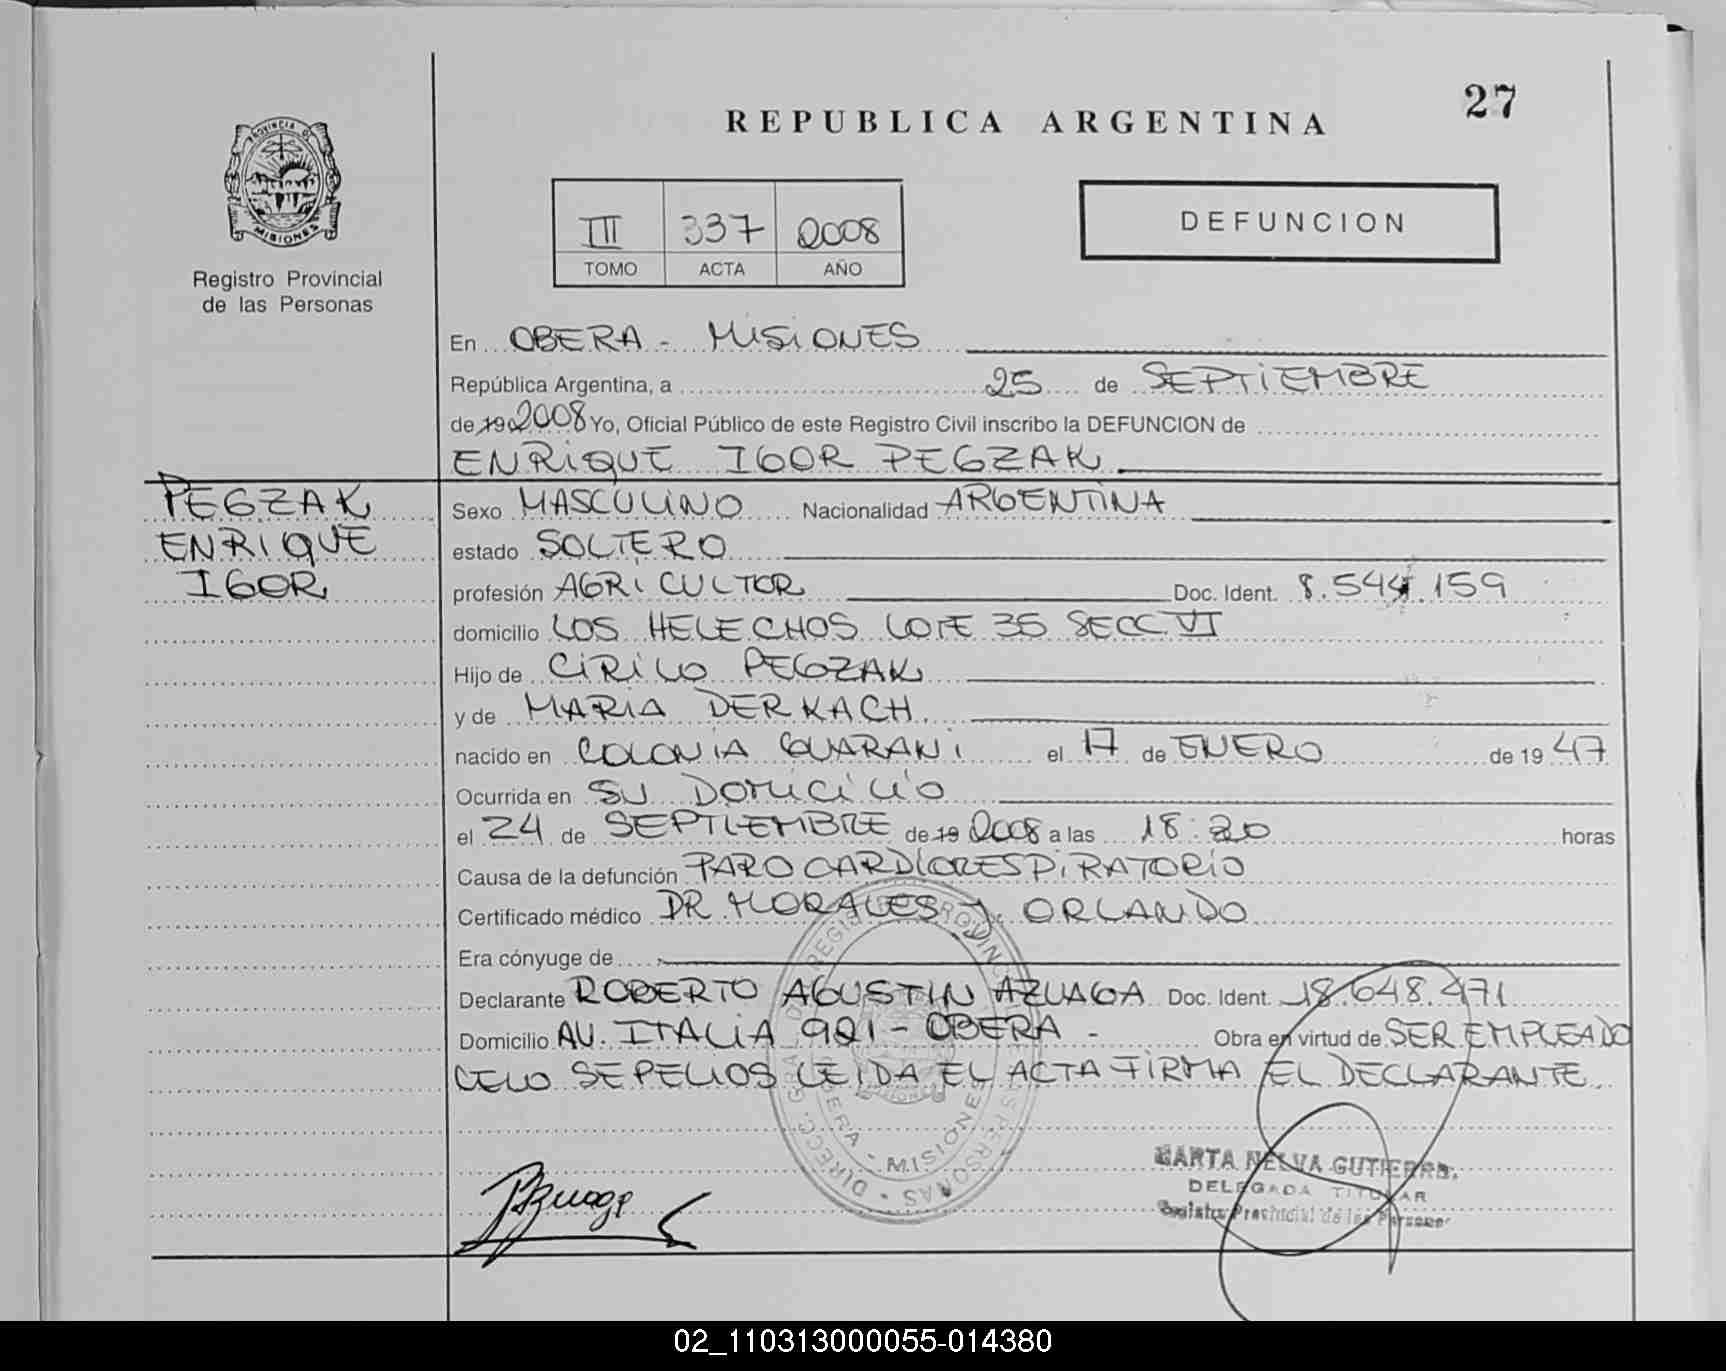 27
REPUBLICA ARGENTINA
PROVINCIA DE
MISIONES
Registro Provincial
de las Personas
III 337 2008
TOMO ACTA AÑO
DEFUNCION
En OBERA - MISIONES
República Argentina, a 25 de SEPTIEMBRE
de 19 2008 Yo, Oficial Público de este Registro Civil inscribo la DEFUNCION de
ENRIQUE IGOR PEGZAK
PEGZAK
ENRIQUE
IGOR
Sexo MASCULINO Nacionalidad ARGENTINA
estado SOLTERO
profesión AGRICULTOR Doc. Ident. 8.544.159
domicilio LOS HELECHOS LOTE 35 SECC VI
Hijo de CIRILO PEGZAK
y de MARIA DERKACH
nacido en COLONIA GUARANI el 17 de ENERO de 19 47
Ocurrida en SU DOMICILIO
el 24 de SEPTIEMBRE de 19 2008 a las 18:20 horas
Causa de la defunción PARO CARDIORESPIRATORIO
Certificado médico DR MORALES J. ORLANDO
Era cónyuge de
Declarante ROBERTO AGUSTIN AZUAGA Doc. Ident. 18.648.471
Domicilio AV. ITALIA 921 - OBERA - Obra en virtud de SER EMPLEADO
CELO SEPELIOS LEIDA EL ACTA FIRMA EL DECLARANTE
OBERA - MISIONES
MARTA NELVA GUTIERRE
DELEGADA TITULAR
Registro Provincial de las Personas
02_110313000055-014380